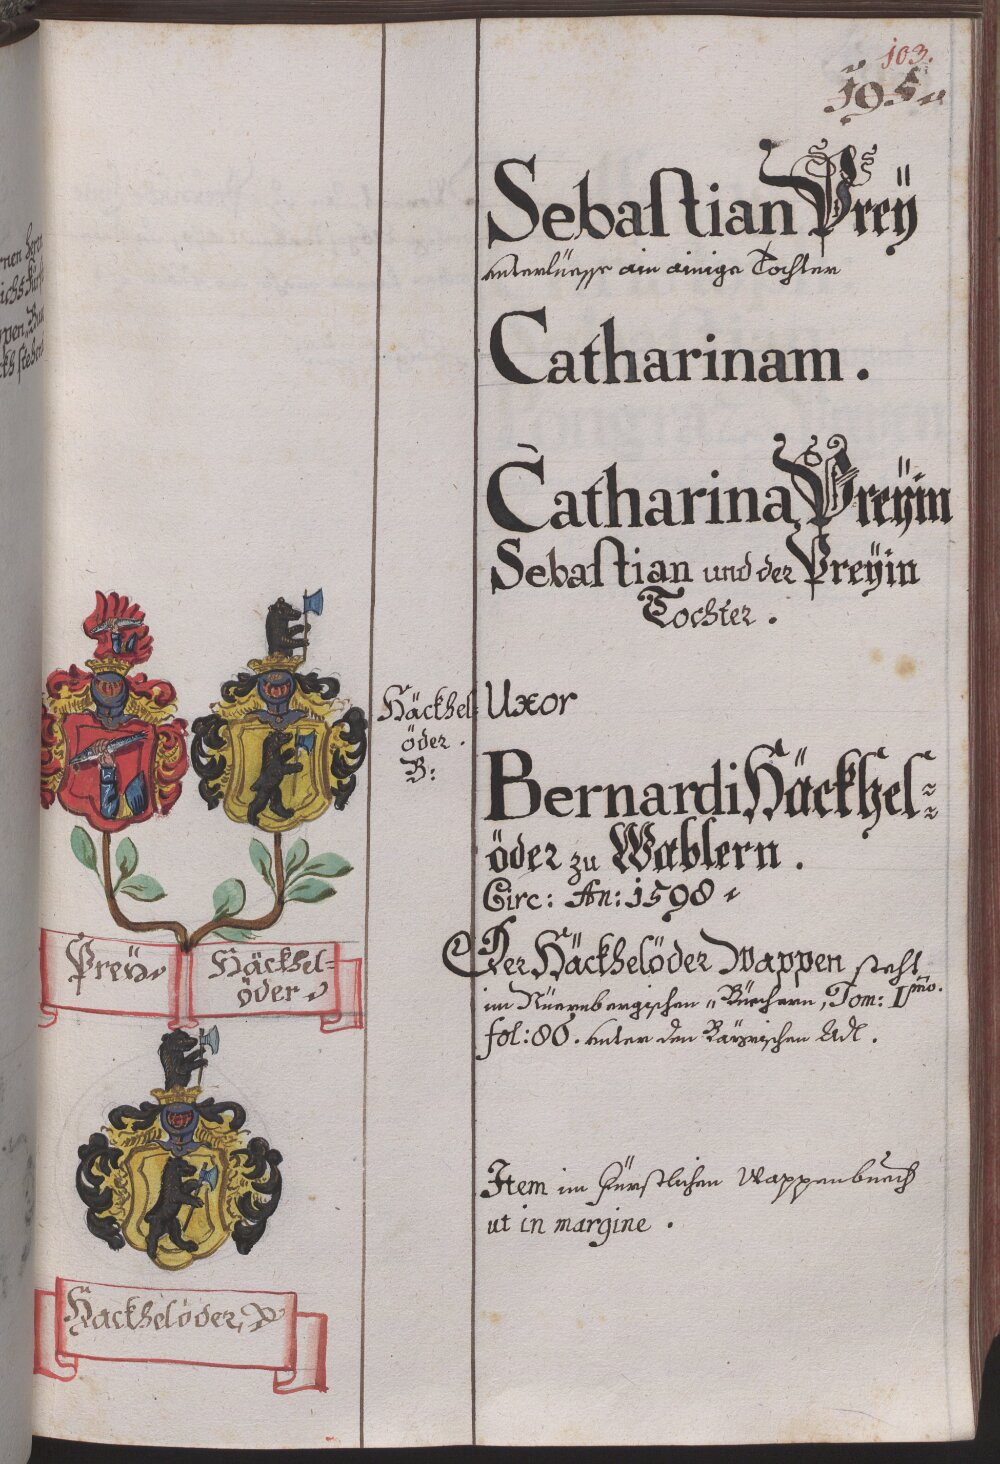 103.
105
Sebastian Preÿ
unterliesse ain ainige Tochter
Catharinam.
Catharina Preÿin
Sebastian und der Preÿin
Tochter.
Häckhel=
öder.
B:
Uxor
Bernardi Häckhel=
öder zu Wablern.
Circ: An: 1598
Der Häckhelöder Wappen steht
im Nüernbergischen Büechern, Tom: Imo.
fol: 86. unter den Bäÿrischen Adl.
Item im Fürstlichen Wappenbuech
ut in margine.
Preÿ
Häckhel=
öder
Häckhelöder,